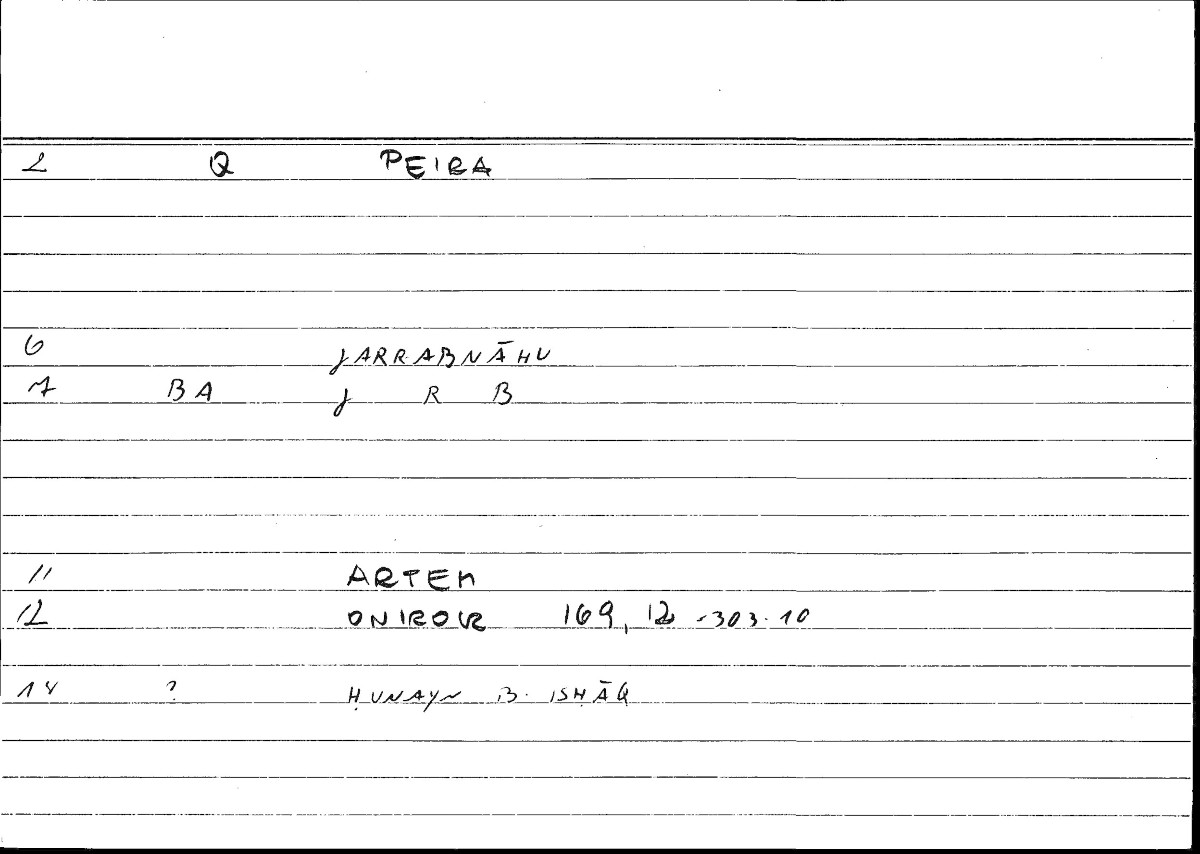 2 Q PEIRA
6 JARRABNĀHU
7 BA J R B
11 ARTEM
12 ONIROKR 169, 12 -303.10
14 ? ḤUNAYN B. ISḤĀQ